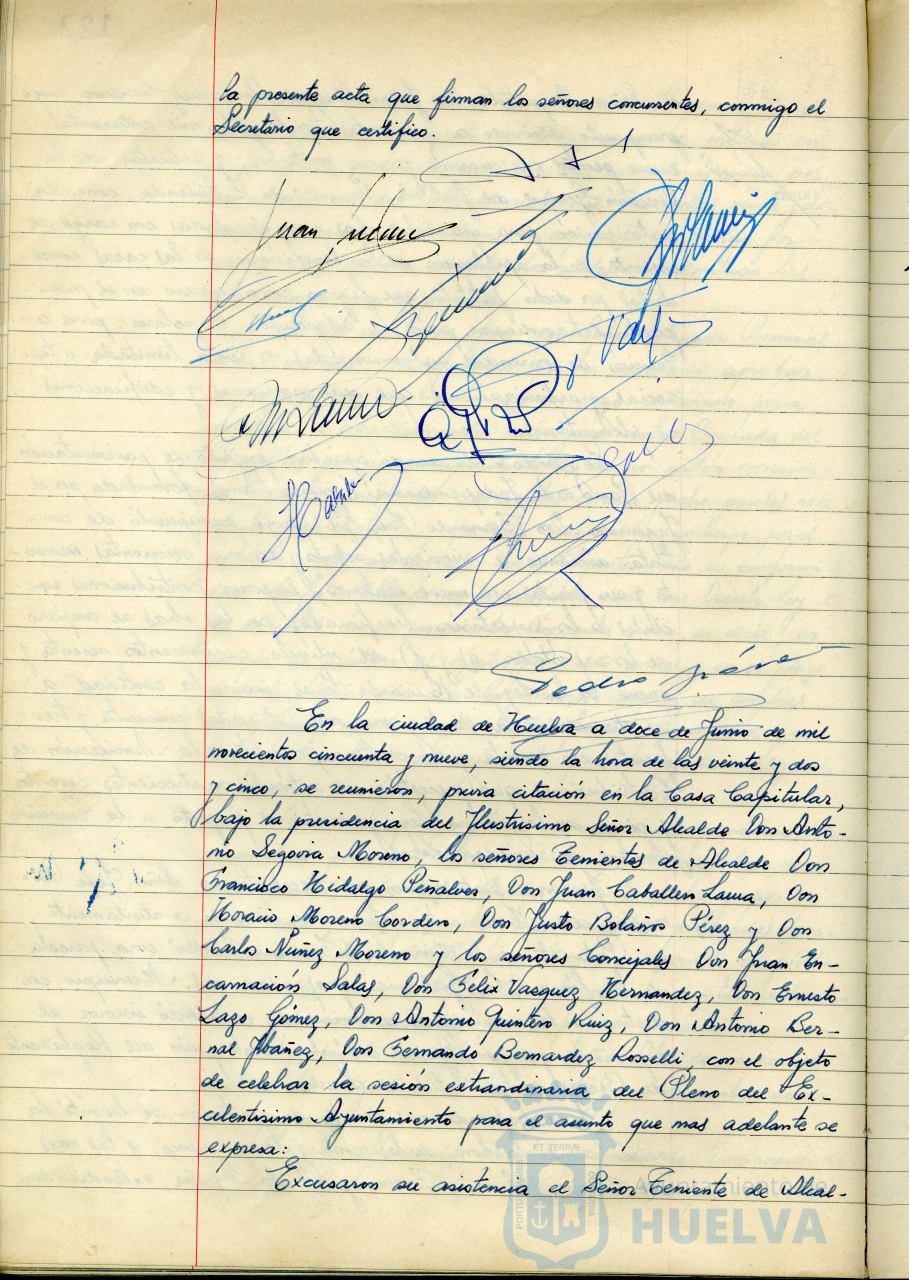 la presente acta que firman los señores concurrentes, conmigo el
Secretario que certifico.
Juan
Pedro
En la ciudad de Huelva a doce de Junio de mil
novecientos cincuenta y nueve, siendo la hora de las veinte y dos
y cinco, se reunieron, previa citación en la Casa Capitular,
bajo la presidencia del Ilustrisimo Señor Alcalde Don Anto-
nio Segovia Moreno, los señores Tenientes de Alcalde Don
Francisco Hidalgo Peñalver, Don Juan Caballero Lama, Don
Horacio Moreno Cordero, Don Justo Bolaños Pérez y Don
Carlos Núñez Moreno y los señores Concejales Don Juan En-
carnación Salas, Don Félix Vazquez Hernandez, Don Ernesto
Lazo Gómez, Don Antonio Quintero Ruiz, Don Antonio Ber-
nal Ibañez, Don Fernando Bernardez Rosselli, con el objeto
de celebrar la sesión extraordinaria del Pleno del Ex-
celentisimo Ayuntamiento para el asunto que mas adelante se
expresa:
Excusaron su asistencia el Señor Teniente de Alcal-
Ayuntamiento de
HUELVA